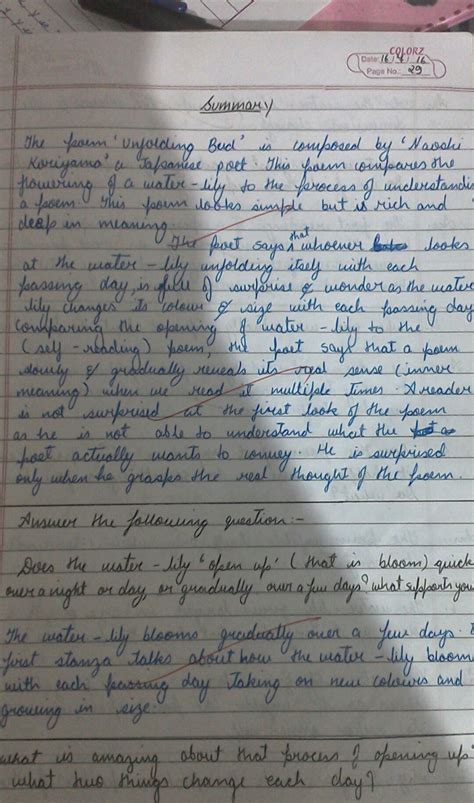 COLORZ
Date: 16/4/16
Page No.: 29
Summary
The poem 'Unfolding Bud' is composed by 'Naoshi
Koriyama' a Japanese poet. This poem compares the
flowering of a water-lily to the process of understandi
a poem. This poem looks simple but is rich and
deep in meaning.
The poet says that whoever looks
at the water-lily unfolding itself with each
passing day, is full of surprise & wonder as the water
lily changes its colour & size with each passing day
Comparing the opening of water-lily to the
(self-reading) poem, the poet says that a poem
slowly & gradually reveals its real sense (inner
meaning) when we read it multiple times. A reader
is not surprised at the first look of the poem
as he is not able to understand what the
poet actually wants to convey. He is surprised
only when he grasps the real thought of the poem.
Answer the following question:-
Does the water-lily 'open up' (that is bloom) quick
over a night or day or gradually over a few days? what supports you
The water-lily blooms gradually over a few days.
first stanza talks about how the water-lily bloom
with each passing day taking on new colours and
growing in size.
what is amazing about that process of opening up
what two things change each day?